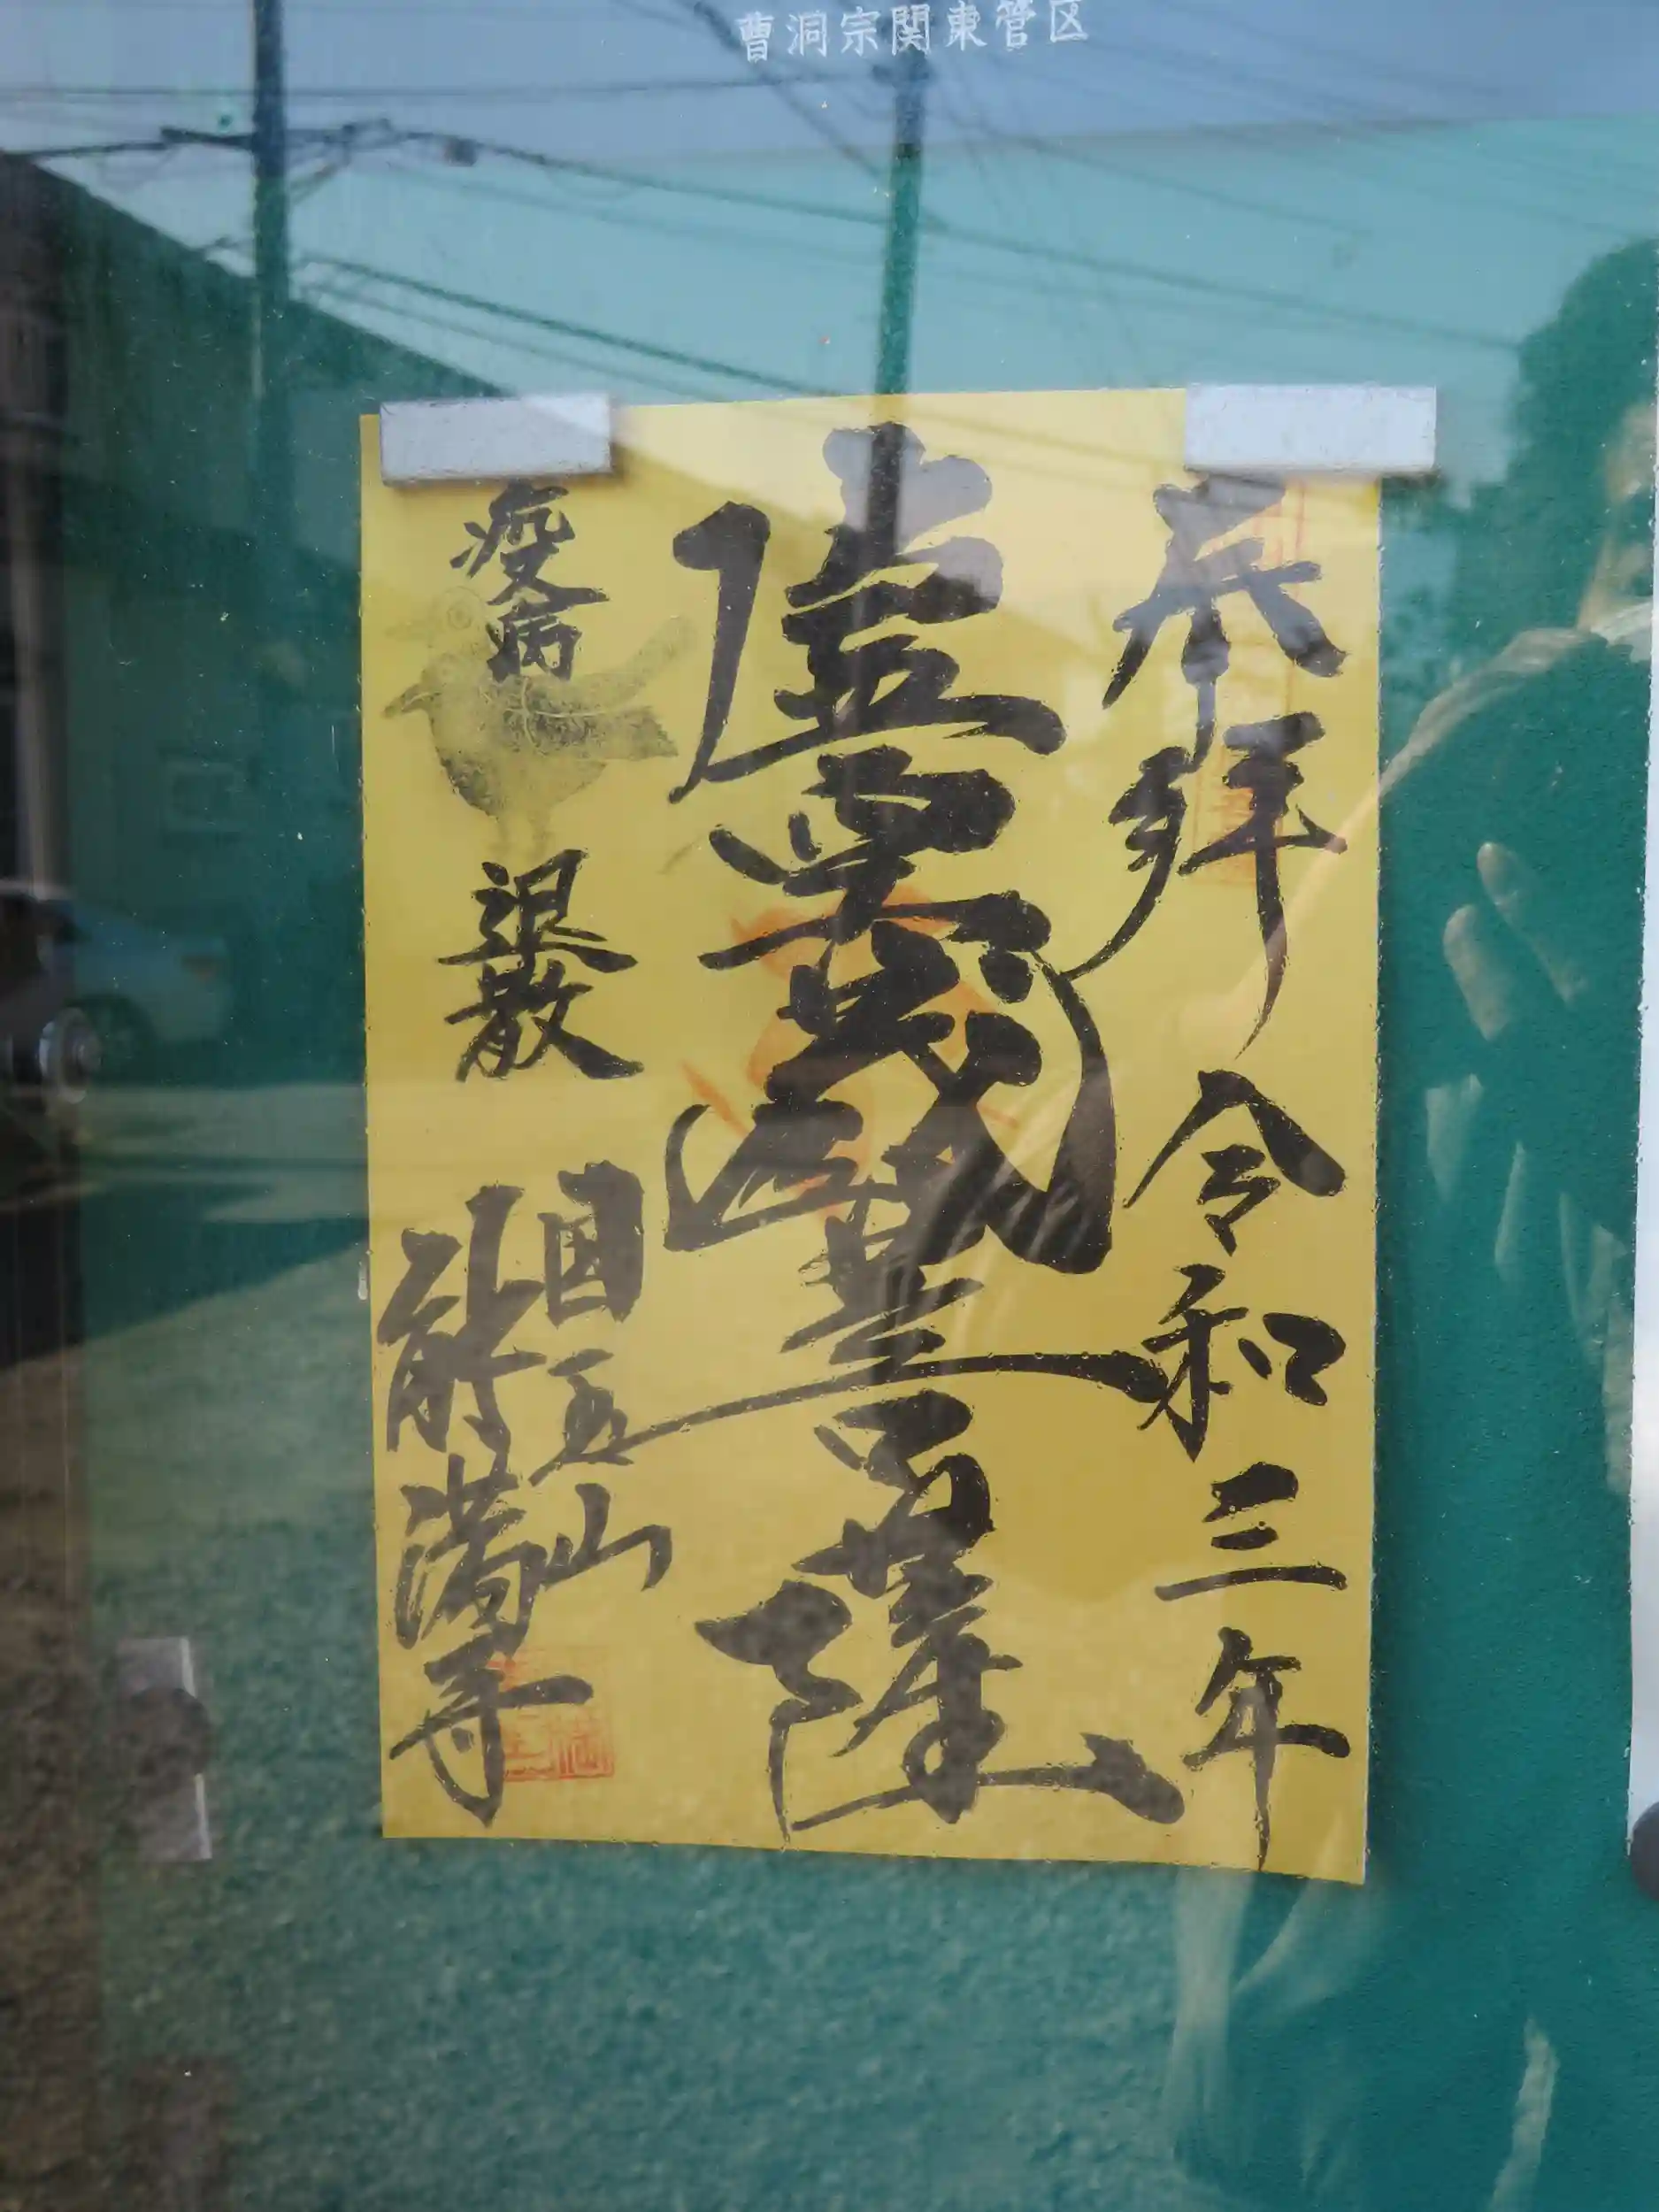 曹洞宗関東管区
奉拝 令和三年
虚空蔵菩薩
疫病 退散
五山
能満寺